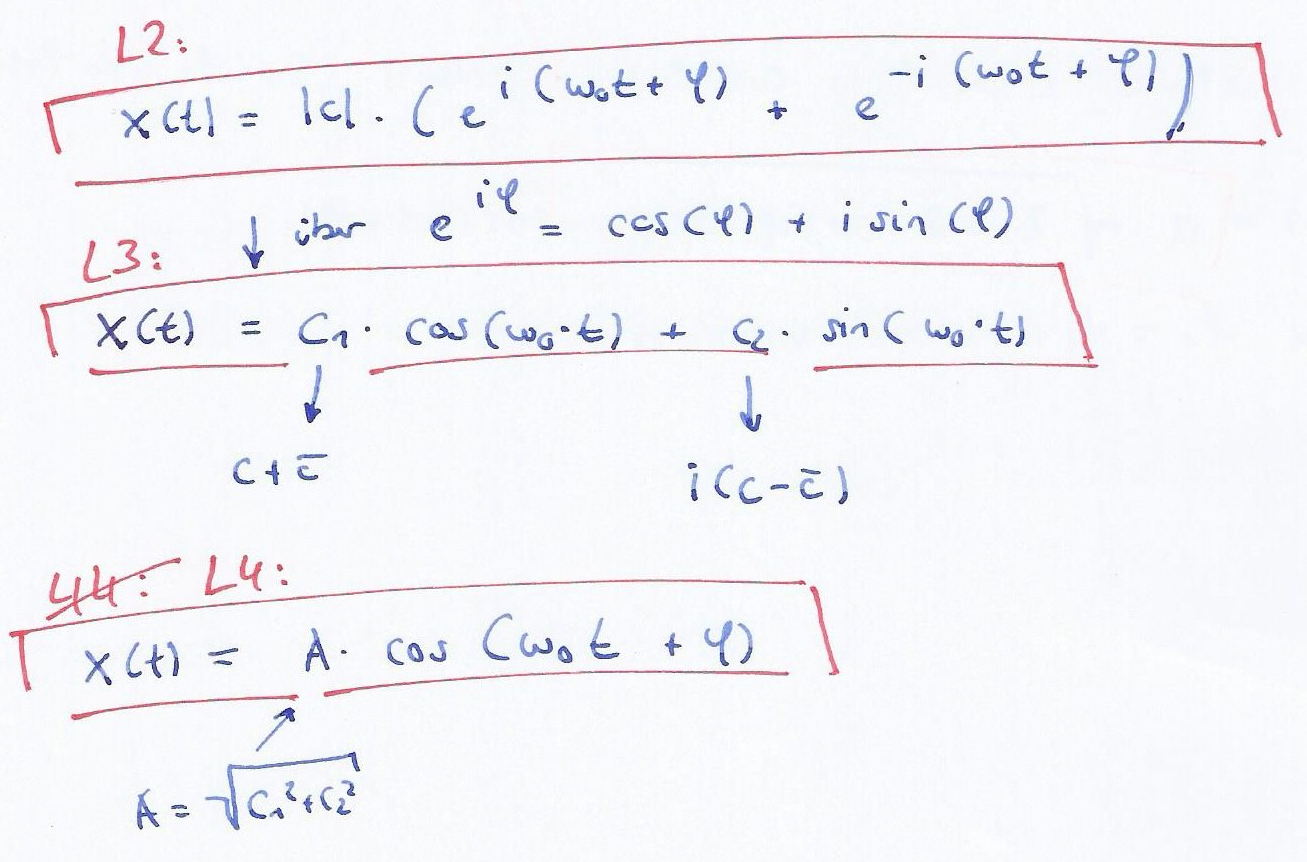 L2:
x(t) = |c| · (e^{i(ω₀t + φ)} + e^{-i(ω₀t + φ)})
↓ über e^{iφ} = cos(φ) + i sin(φ)
L3:
x(t) = C₁ · cos(ω₀·t) + C₂ · sin(ω₀·t)
↓ ↓
c + c̄ i(c - c̄)
44: L4:
x(t) = A · cos(ω₀t + φ)
↗
A = √(C₁² + C₂²)